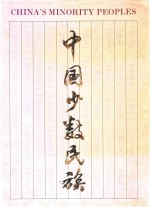 CHINA'S MINORITY PEOPLES
中国少数民族